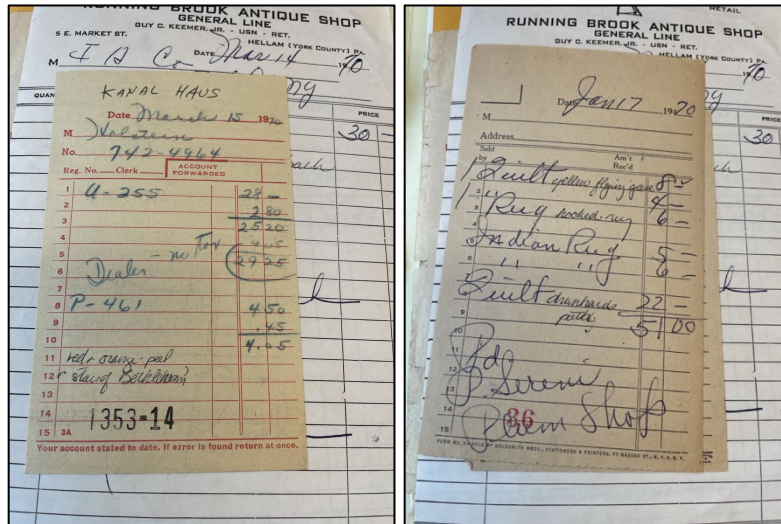 RUNNING BROOK ANTIQUE SHOP
GENERAL LINE
GUY C. KEEMER, JR. - USN - RET.
5 E. MARKET ST.
HELLAM (YORK COUNTY) PA.
DATE Mar 14 1970
M I A Co
QUAN
PRICE
30 -
KANAL HAUS
Date March 15 1970
M Holstein
No. 742-4964
Reg. No. Clerk ACCOUNT FORWARDED
1 U-255 28 -
2 2 80
3 25 20
4 4 05
5 Dealer - no Tax 29 25
6
7
8 P-461 4 50
9 .45
10 4.05
11 red & orange-peel
12 star of Bethlehem
13
14 1353-14
15 3A
Your account stated to date. If error is found return at once.
RETAIL
RUNNING BROOK ANTIQUE SHOP
GENERAL LINE
GUY C. KEEMER, JR. - USN - RET.
HELLAM (YORK COUNTY) PA.
1970
PRICE
30 -
Date Jan 17 1970
M
Address
Sold by Am't Rec'd
1 Quilt yellow flying geese 8 -
4 -
1 Rug hooked rug 6 -
Indian Rug 5 -
" " 6 -
Quilt drunkards path 22 -
51 00
Pd
P. Sereni
Shop
86
FORM NO. SOLD BY GOLDSMITH BROS., STATIONERS & PRINTERS, 77 NASSAU ST., N.Y.C. N.Y.